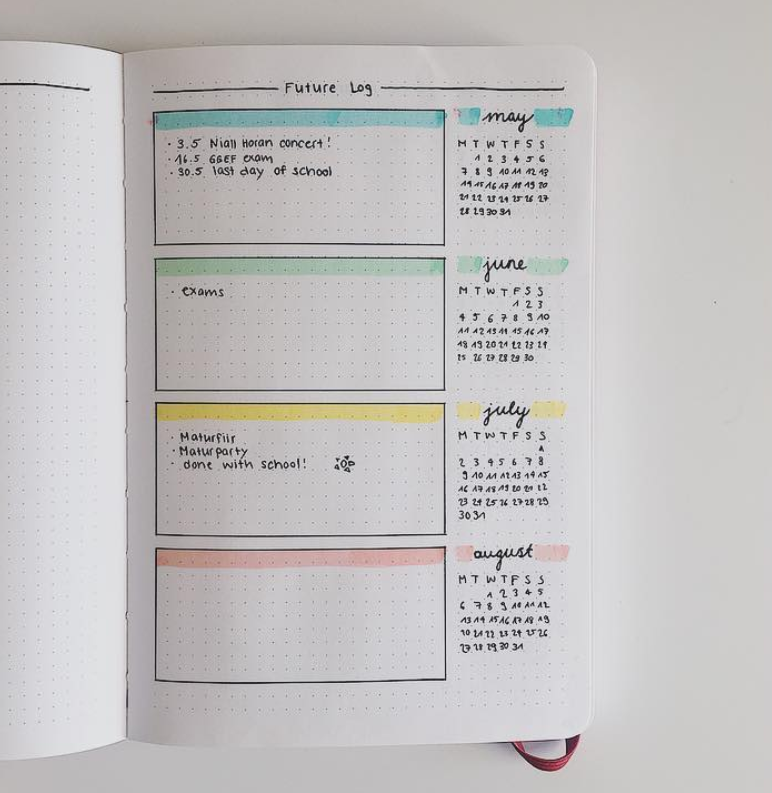 Future Log
· 3.5 Niall Horan concert!
· 16.5 GGEF exam
· 30.5 last day of school
may
M T W T F S S
1 2 3 4 5 6
7 8 9 10 11 12 13
14 15 16 17 18 19 20
21 22 23 24 25 26 27
28 29 30 31
· exams
june
M T W T F S S
1 2 3
4 5 6 7 8 9 10
11 12 13 14 15 16 17
18 19 20 21 22 23 24
25 26 27 28 29 30
· Maturfiir
· Maturparty
· done with school!
july
M T W T F S S
1
2 3 4 5 6 7 8
9 10 11 12 13 14 15
16 17 18 19 20 21 22
23 24 25 26 27 28 29
30 31
august
M T W T F S S
1 2 3 4 5
6 7 8 9 10 11 12
13 14 15 16 17 18 19
20 21 22 23 24 25 26
27 28 29 30 31